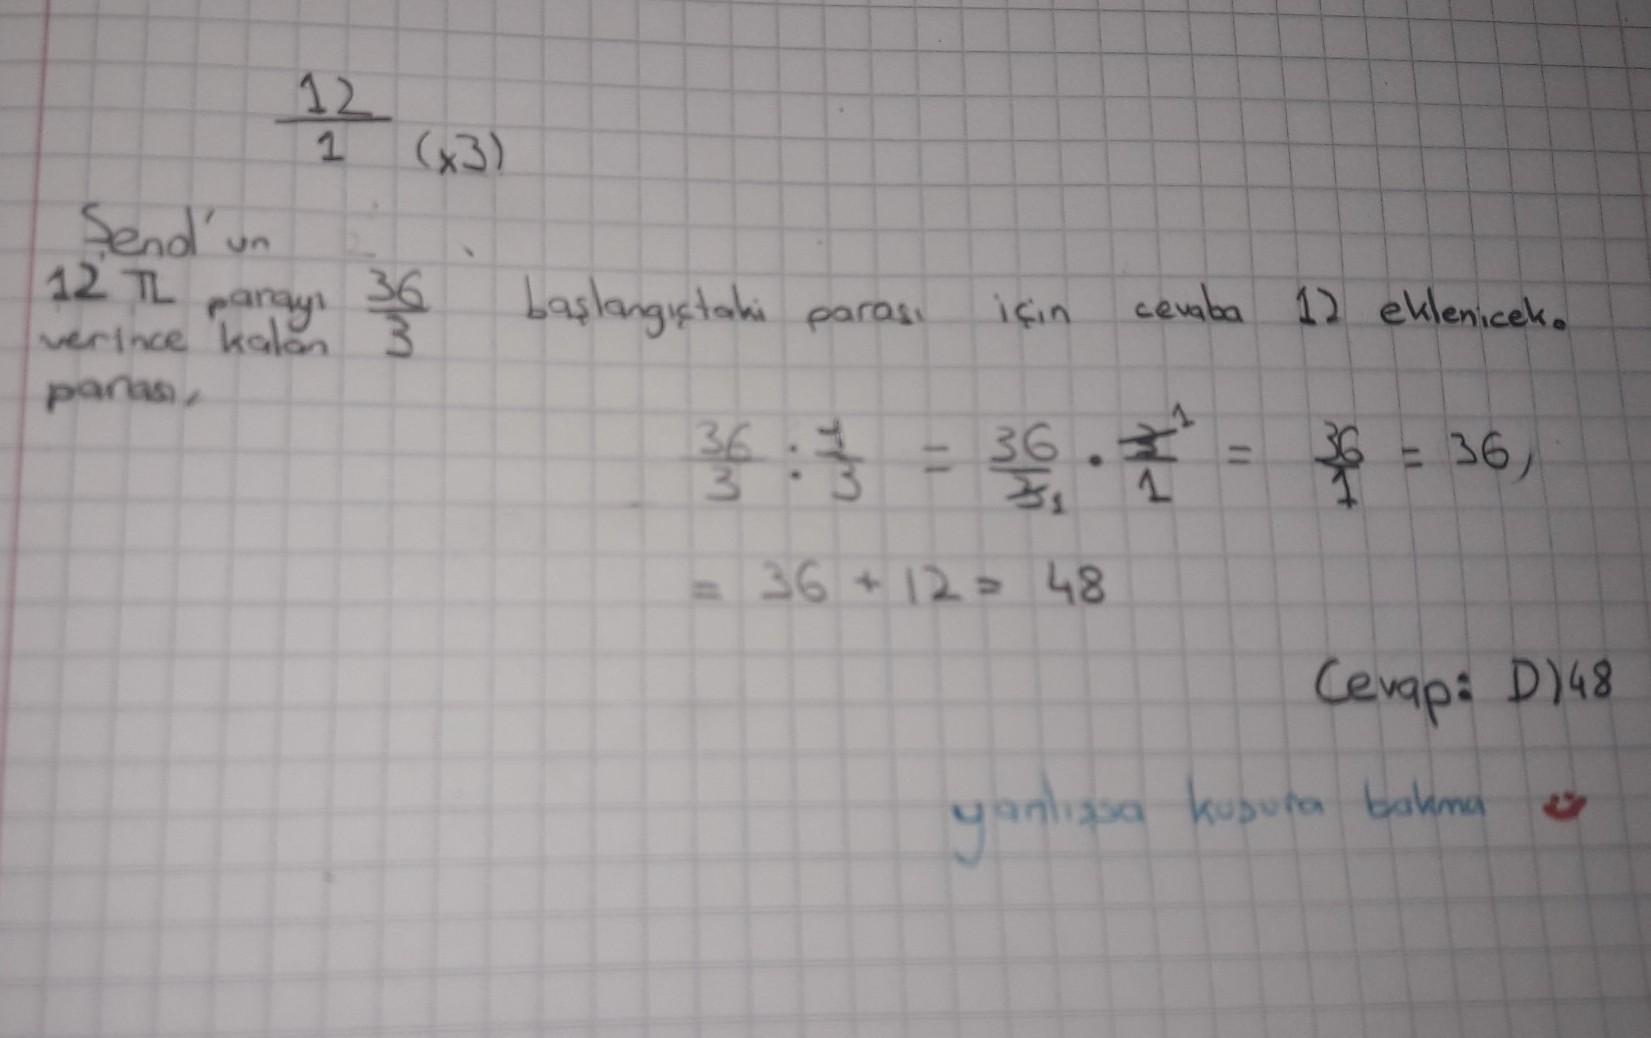 12
1 (x3)
Şenol'un
12 TL parayı 36 başlangıçtaki parası için cevaba 12 eklenicek.
verince kalan 3
parası,
36/3 : 1/3 = 36/3 1 . 3 1/1 = 36/1 = 36,
= 36 + 12 = 48
Cevap: D)48
yanlışsa kusura bakma